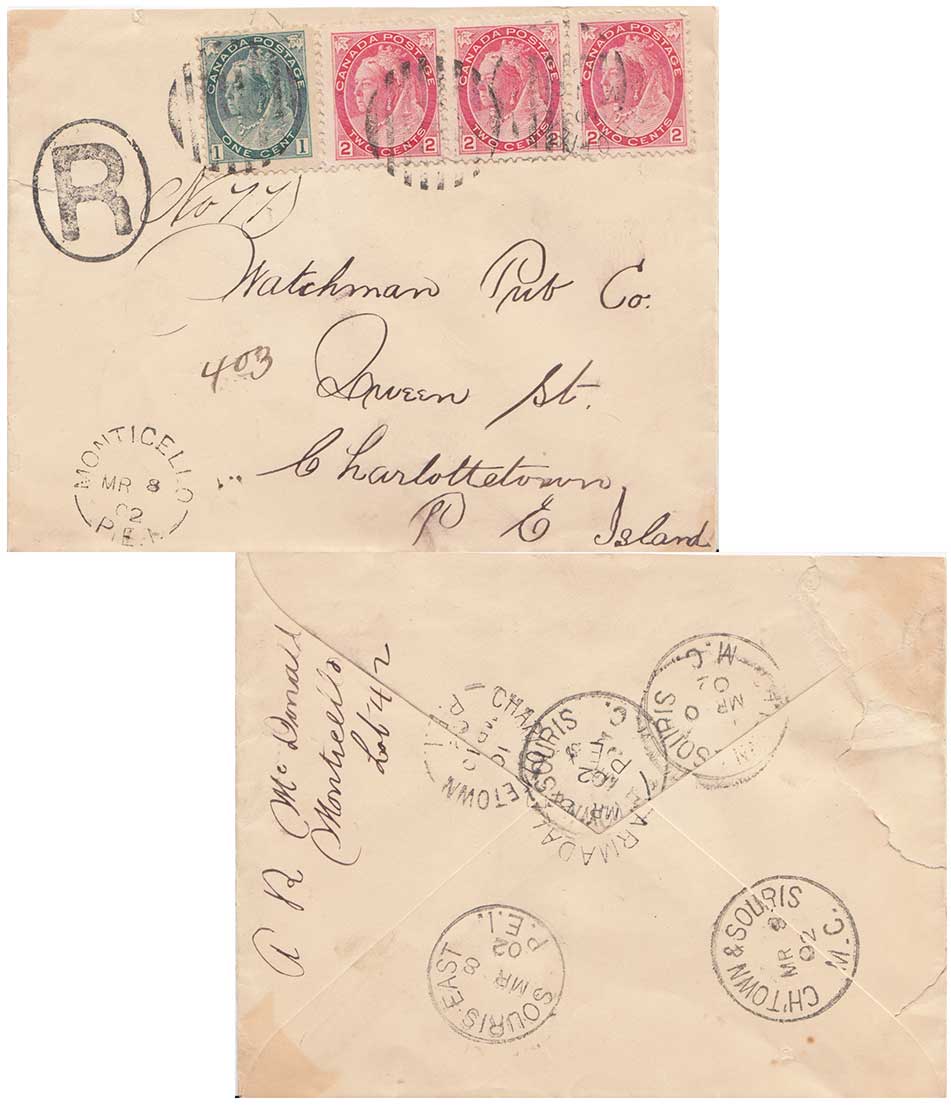 CANADA POSTAGE
ONE CENT
1 1
CANADA POSTAGE
TWO CENTS
2 2
CANADA POSTAGE
TWO CENTS
2 2
CANADA POSTAGE
TWO CENTS
2 2
R
No 77
Watchman Pub Co.
403
Queen St.
Charlottetown
P E Island
MONTICELLO
MR 8
02
P.E.I.
A R McDonald
Monticello
Lot 42
SOURIS
M.C.
MR
02
CHAR ETOWN
SOURIS
ARMADAL
SOURIS EAST
8
MR
02
P.E.I.
CH'TOWN & SOURIS
MR 9
02
M.C.